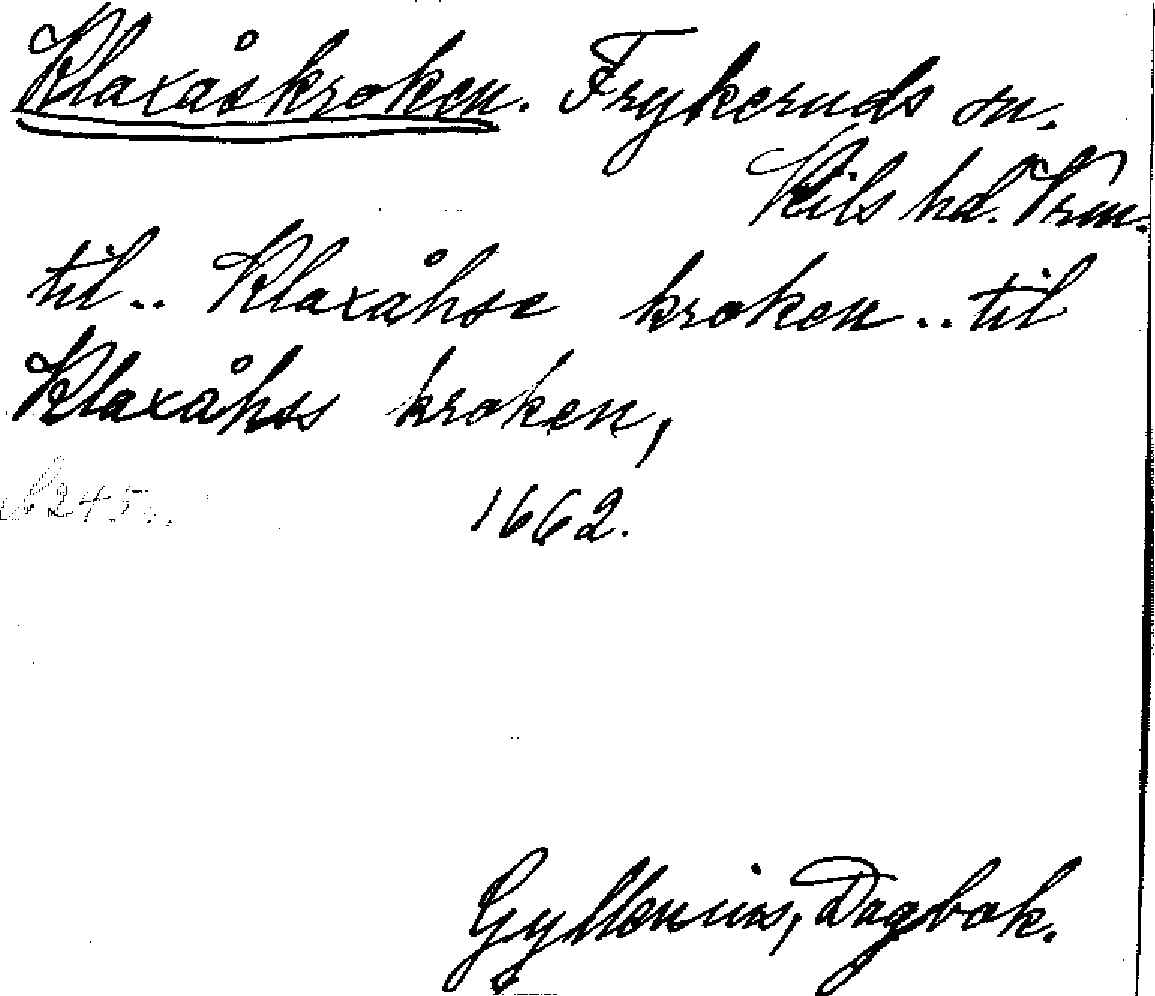 Klaxåskroken. Frykeruds sn.
Kils hd. Vrm.
til.. Klaxåhse kroken .. til
Klaxåhss kroken,
1662.
Gyllenius, Dagbok.